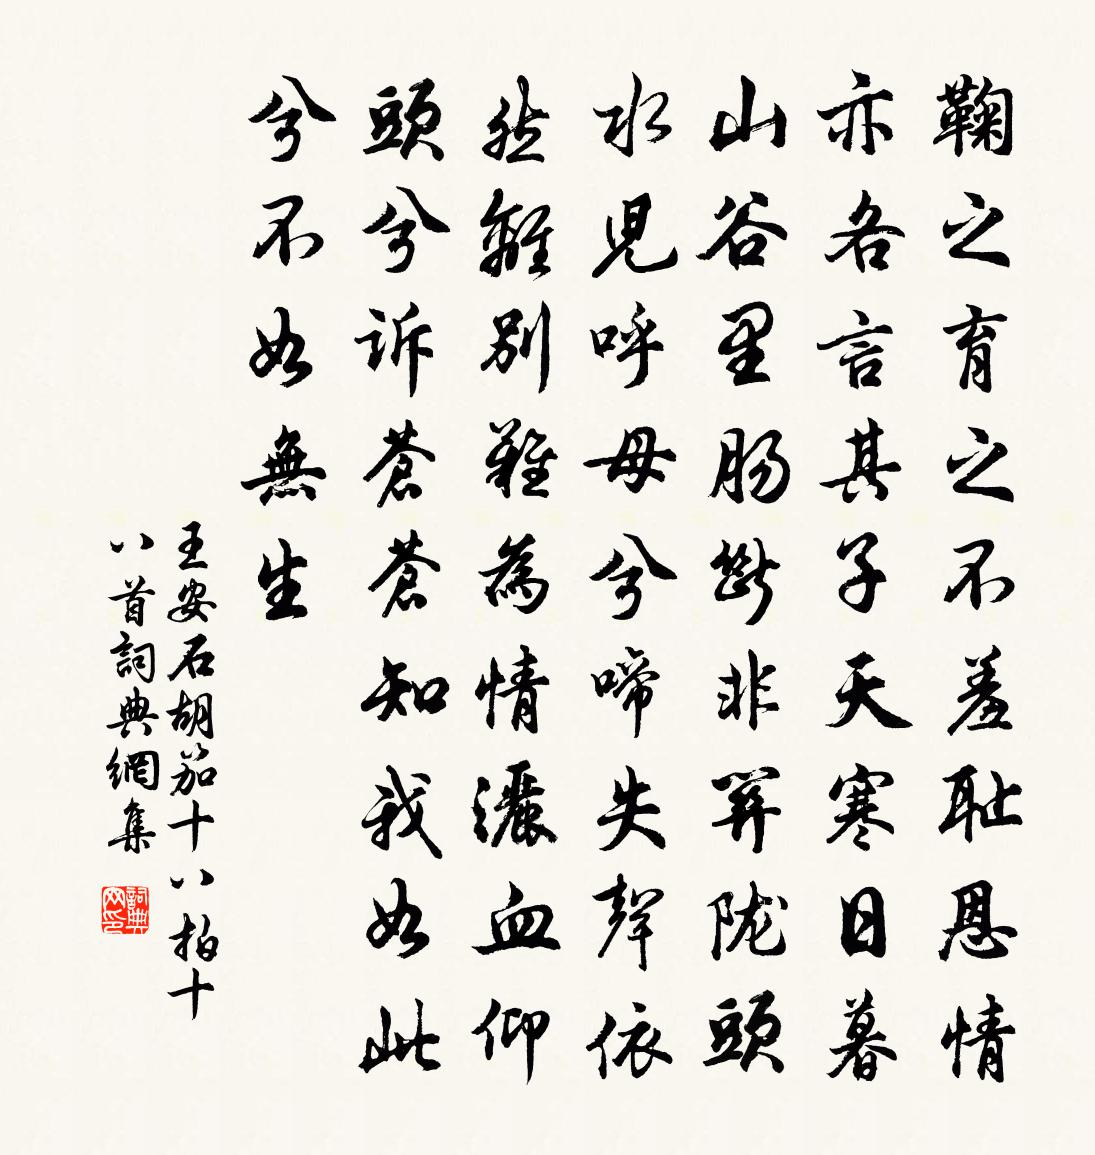 鞠之育之不羞耻恩情
亦各言其子天寒日暮
山谷里肠斷非關陇頭
水児呼母兮啼失聲依
然離別難為情灑血仰
頭兮訴蒼蒼知我如此
兮不如無生
王安石胡笳十八拍十
八首詞典網集
詞典網印